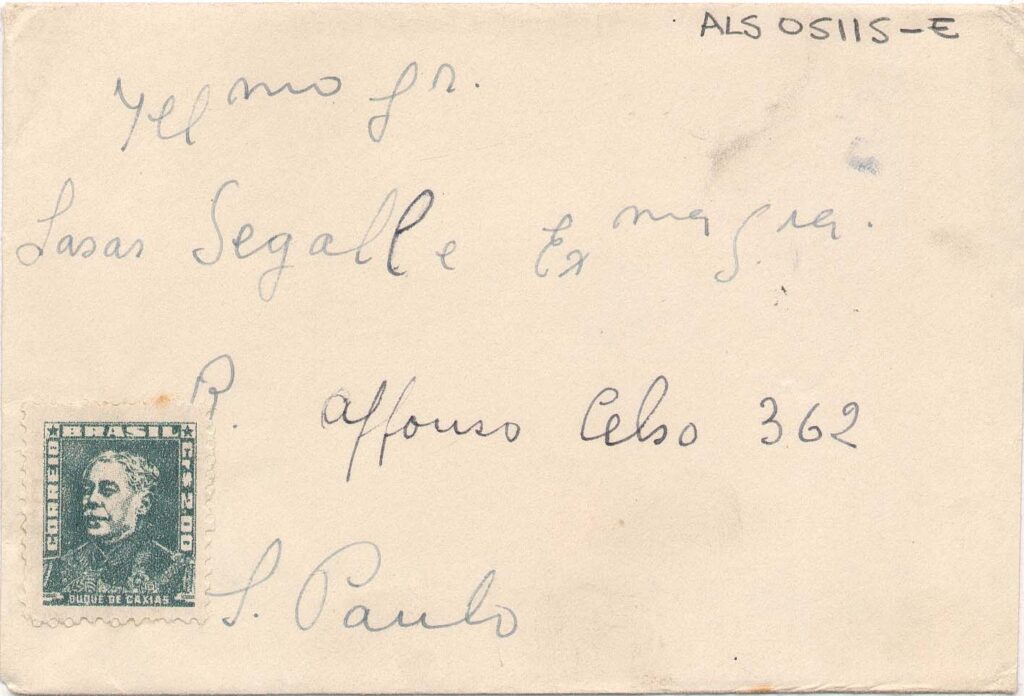 ALS 05115-E
Illmo Sr.
Lasar Segalle Exma Sra.
R. Affonso Celso 362
BRASIL
CORREIO
CR$2,00
DUQUE DE CAXIAS
S. Paulo